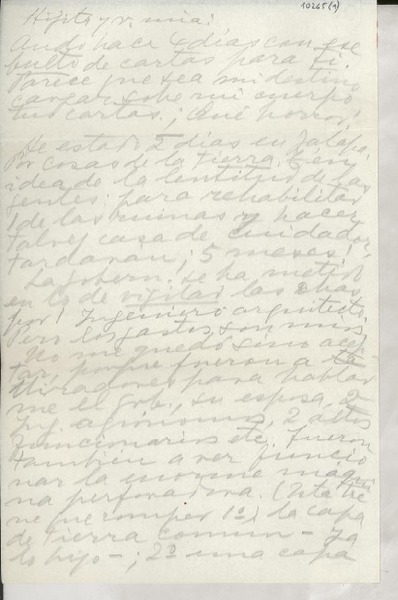 10265 (1)
Hijita y v. mía:
Ando hace 4 días con ese
bulto de cartas para ti.
Parece que sea mi destino
cargar sobre mi cuerpo
tus cartas. ¡Qué horror!
He estado 2 días en Jalapa
por cosas de la tierra. Ten
idea de la lentitud de las
gentes: para rehabilitar
1 de las ruinas y hacer
tal vez casa de cuidador,
tardarán ¡5 meses!
La gobern. se ha metido
en lo de vigilar las obras
por 1 Ingeniero arquitecto.
Pero los gastos son míos
No me quedó sino acep
tar, porque fueron a
Miradores para hablar
me el Gob., su esposa, 2
Ing. agrónomos, 2 altos
funcionarios etc. Fueron
también a ver funcio
nar la enorme máqui
na perforadora. (Esta tie
ne que romper 1º) la capa
de tierra común - Ya
lo hizo - ; 2º una capa